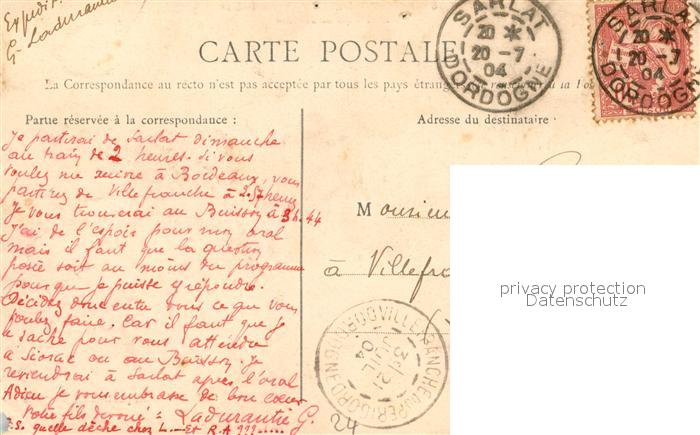 Expedit.
G. Laduranti
CARTE POSTALE
La Correspondance au recto n'est pas acceptée par tous les pays étrangers
Partue réservée à la correspondance :
Adresse du destinataire
SARLAT
20 *
20 -7
04
DORDOGNE
SARLAT
20 *
20 -7
04
DORDOGNE
Je partirai de Sarlat dimanche
au train de 2 heures. si vous
voulez me suivre à Bordeaux, vous
partirez de Villefranche à 2.57 heures
Je vous trouverai au Buisson à 3h.44
J'ai de l'espoir pour mon oral
mais il faut que la question
posée soit au moins du programme
pour que je puisse y répondre.
Décidez donc entre vous ce que vous
voulez faire. Car il faut que je
sache pour vous attendre
à Siorac ou au Buisson. Je
reviendrai à Sarlat après l'oral
Adieu je vous embrasse de bon cœur
Votre fils dévoué = Ladurantie G.
P.S. quelle dèche chez L.— et R.A ???.....
Monsieur
à Villefra
VILLEFRANCHE DU PERIGORD
3E 21
JUIL
04
24
privacy protection
Datenschutz